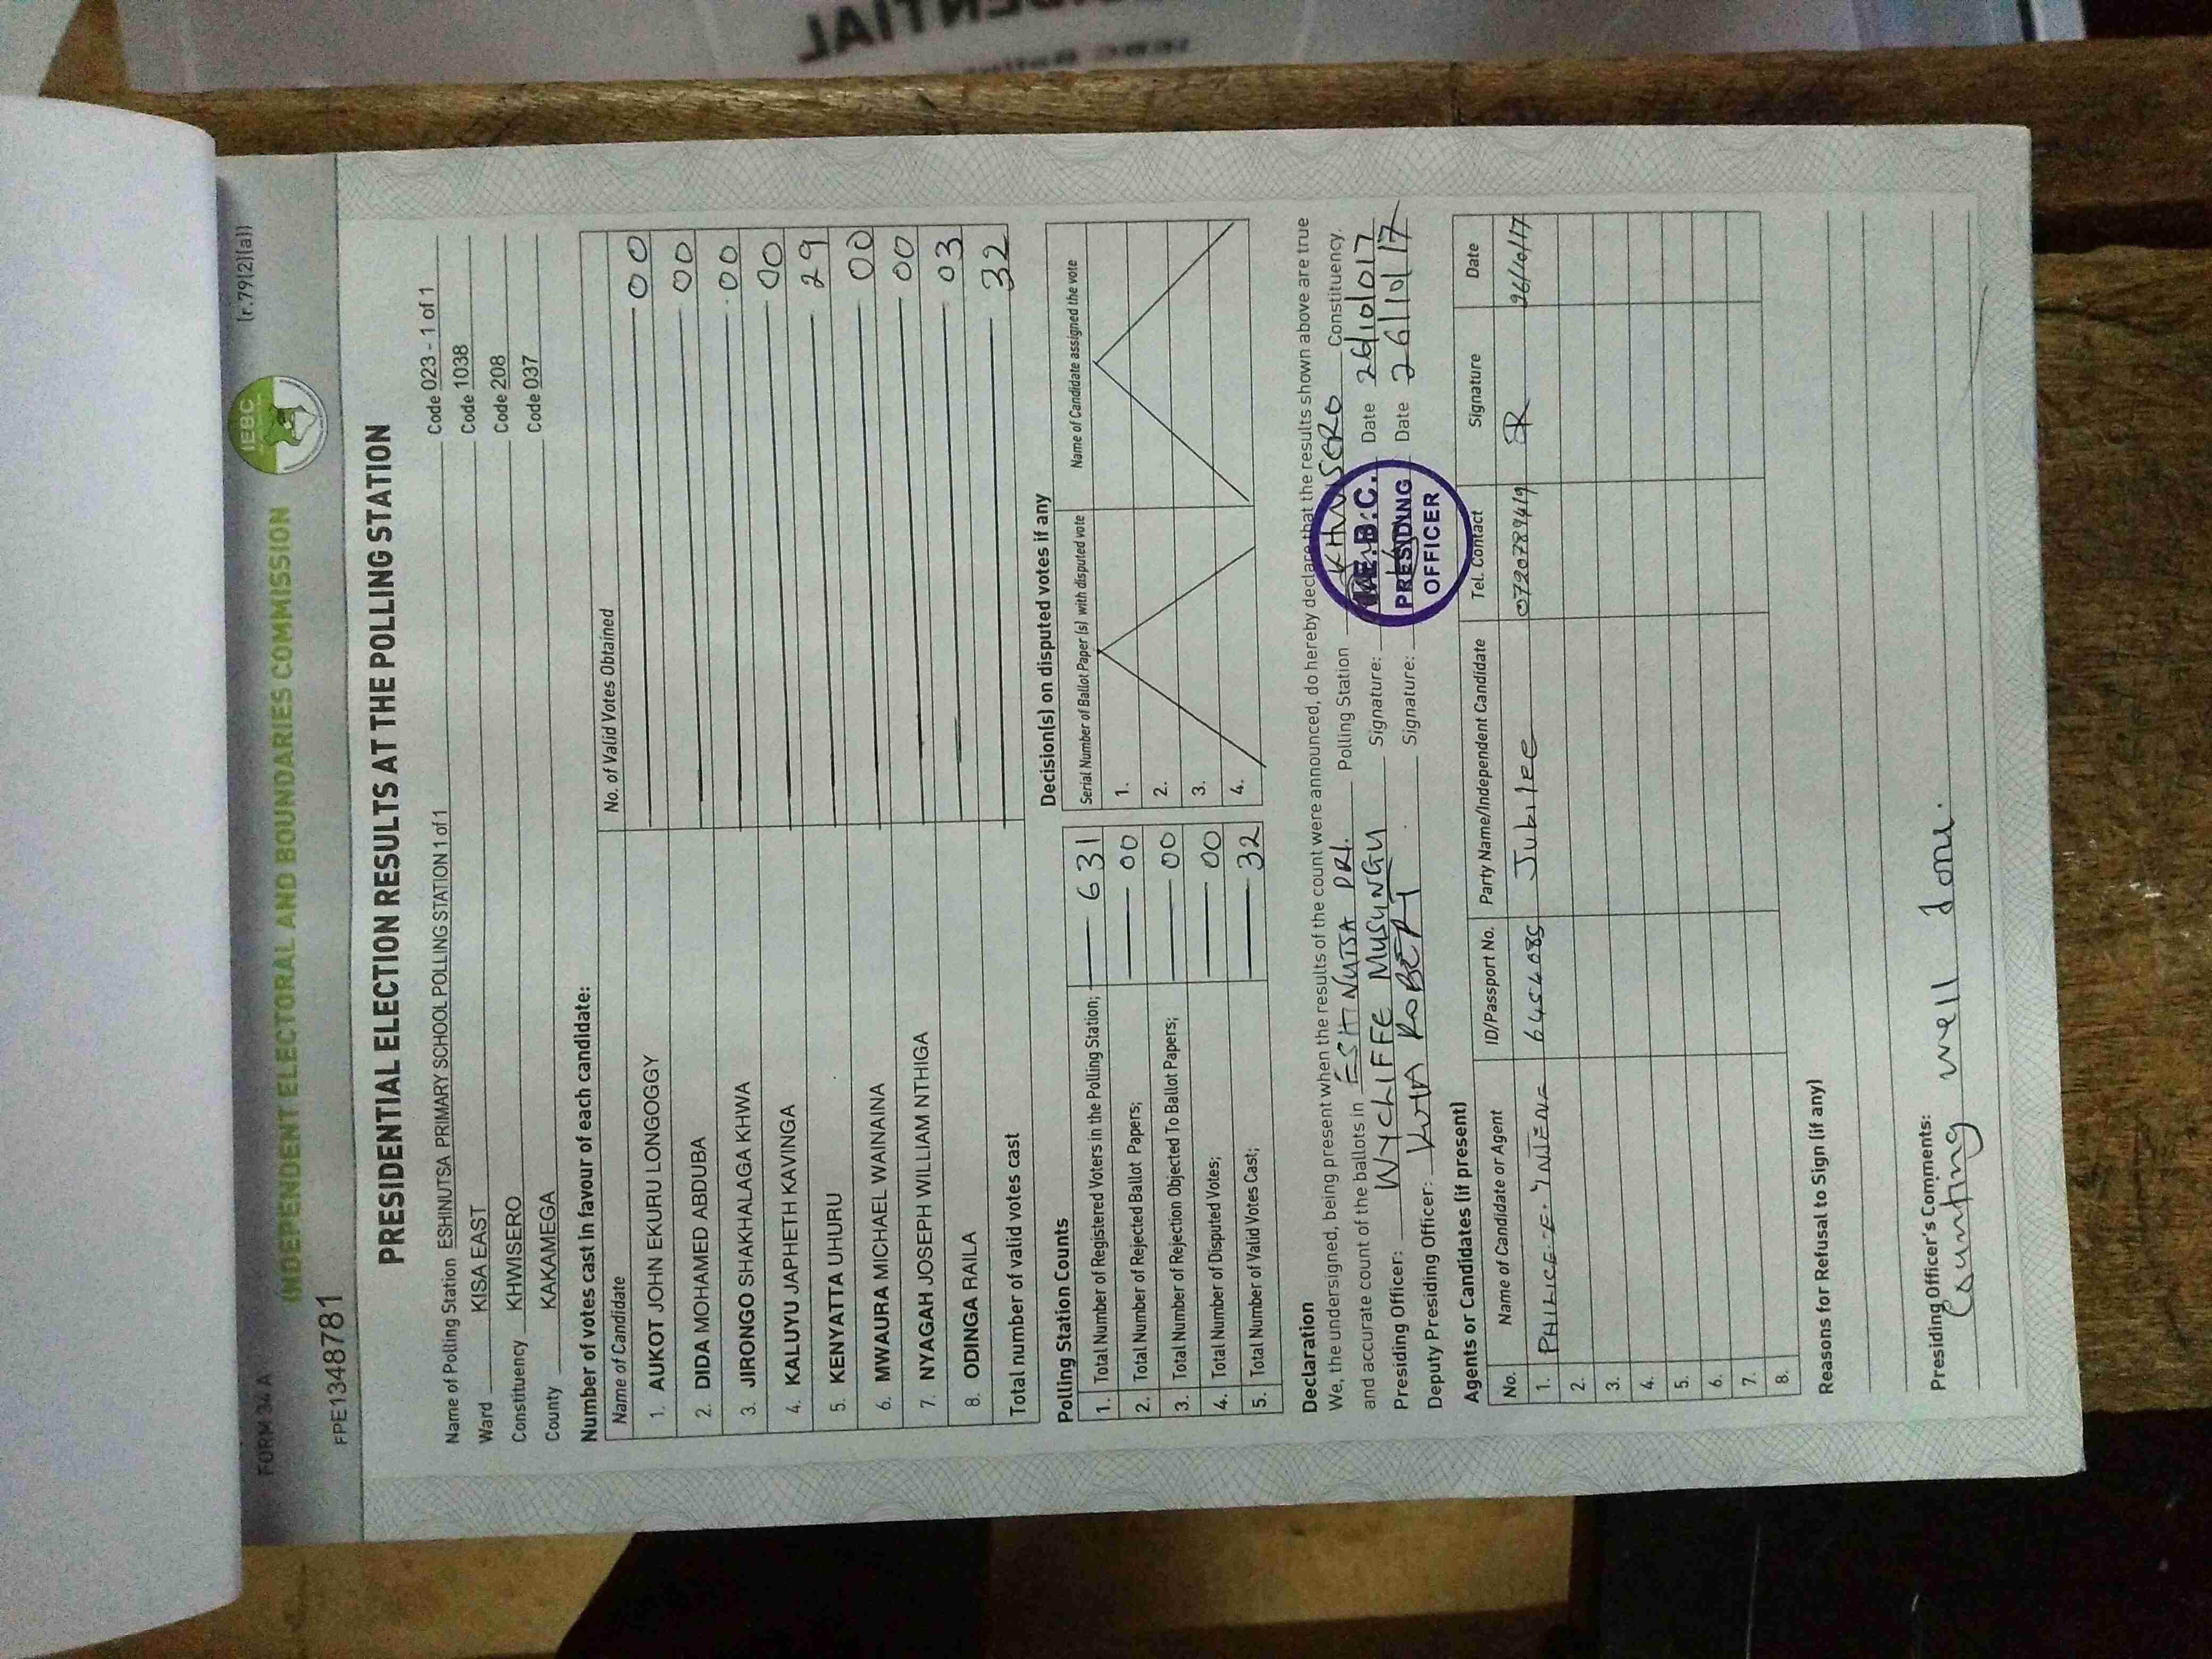 FORM 34 A
(r.79(2)(a))
INDEPENDENT ELECTORAL AND BOUNDARIES COMMISSION
IEBC
FPE1348781
PRESIDENTIAL ELECTION RESULTS AT THE POLLING STATION
Name of Polling Station ESHINUTSA PRIMARY SCHOOL POLLING STATION 1 of 1 Code 023 - 1 of 1
Ward KISA EAST Code 1038
Constituency KHWISERO Code 208
County KAKAMEGA Code 037
Number of votes cast in favour of each candidate:
Name of Candidate No. of Valid Votes Obtained
1. AUKOT JOHN EKURU LONGOGGY 00
2. DIDA MOHAMED ABDUBA 00
3. JIRONGO SHAKHALAGA KHWA 00
4. KALUYU JAPHETH KAVINGA 00
5. KENYATTA UHURU 29
6. MWAURA MICHAEL WAINAINA 00
7. NYAGAH JOSEPH WILLIAM NTHIGA 00
8. ODINGA RAILA 03
Total number of valid votes cast 32
Polling Station Counts
1. Total Number of Registered Voters in the Polling Station; 631
2. Total Number of Rejected Ballot Papers; 00
3. Total Number of Rejection Objected To Ballot Papers; 00
4. Total Number of Disputed Votes; 00
5. Total Number of Valid Votes Cast; 32
Decision(s) on disputed votes if any
Serial Number of Ballot Paper (s) with disputed vote Name of Candidate assigned the vote
1.
2.
3.
4.
Declaration
We, the undersigned, being present when the results of the count were announced, do hereby declare that the results shown above are true
and accurate count of the ballots in ESHINUTSA PRI. Polling Station KHWISERO Constituency.
Presiding Officer: WYCLIFFE MUSUNGU Signature: Date 26/10/017
Deputy Presiding Officer: ROBERT Signature: Date 26/10/17
I.E.B.C.
PRESIDING
OFFICER
Agents or Candidates (if present)
No. Name of Candidate or Agent ID/Passport No. Party Name/Independent Candidate Tel. Contact Signature Date
1. 6454085 Jubilee 0720789419 26/10/17
2.
3.
4.
5.
6.
7.
8.
Reasons for Refusal to Sign (if any)
Presiding Officer's Comments:
Counting well done.